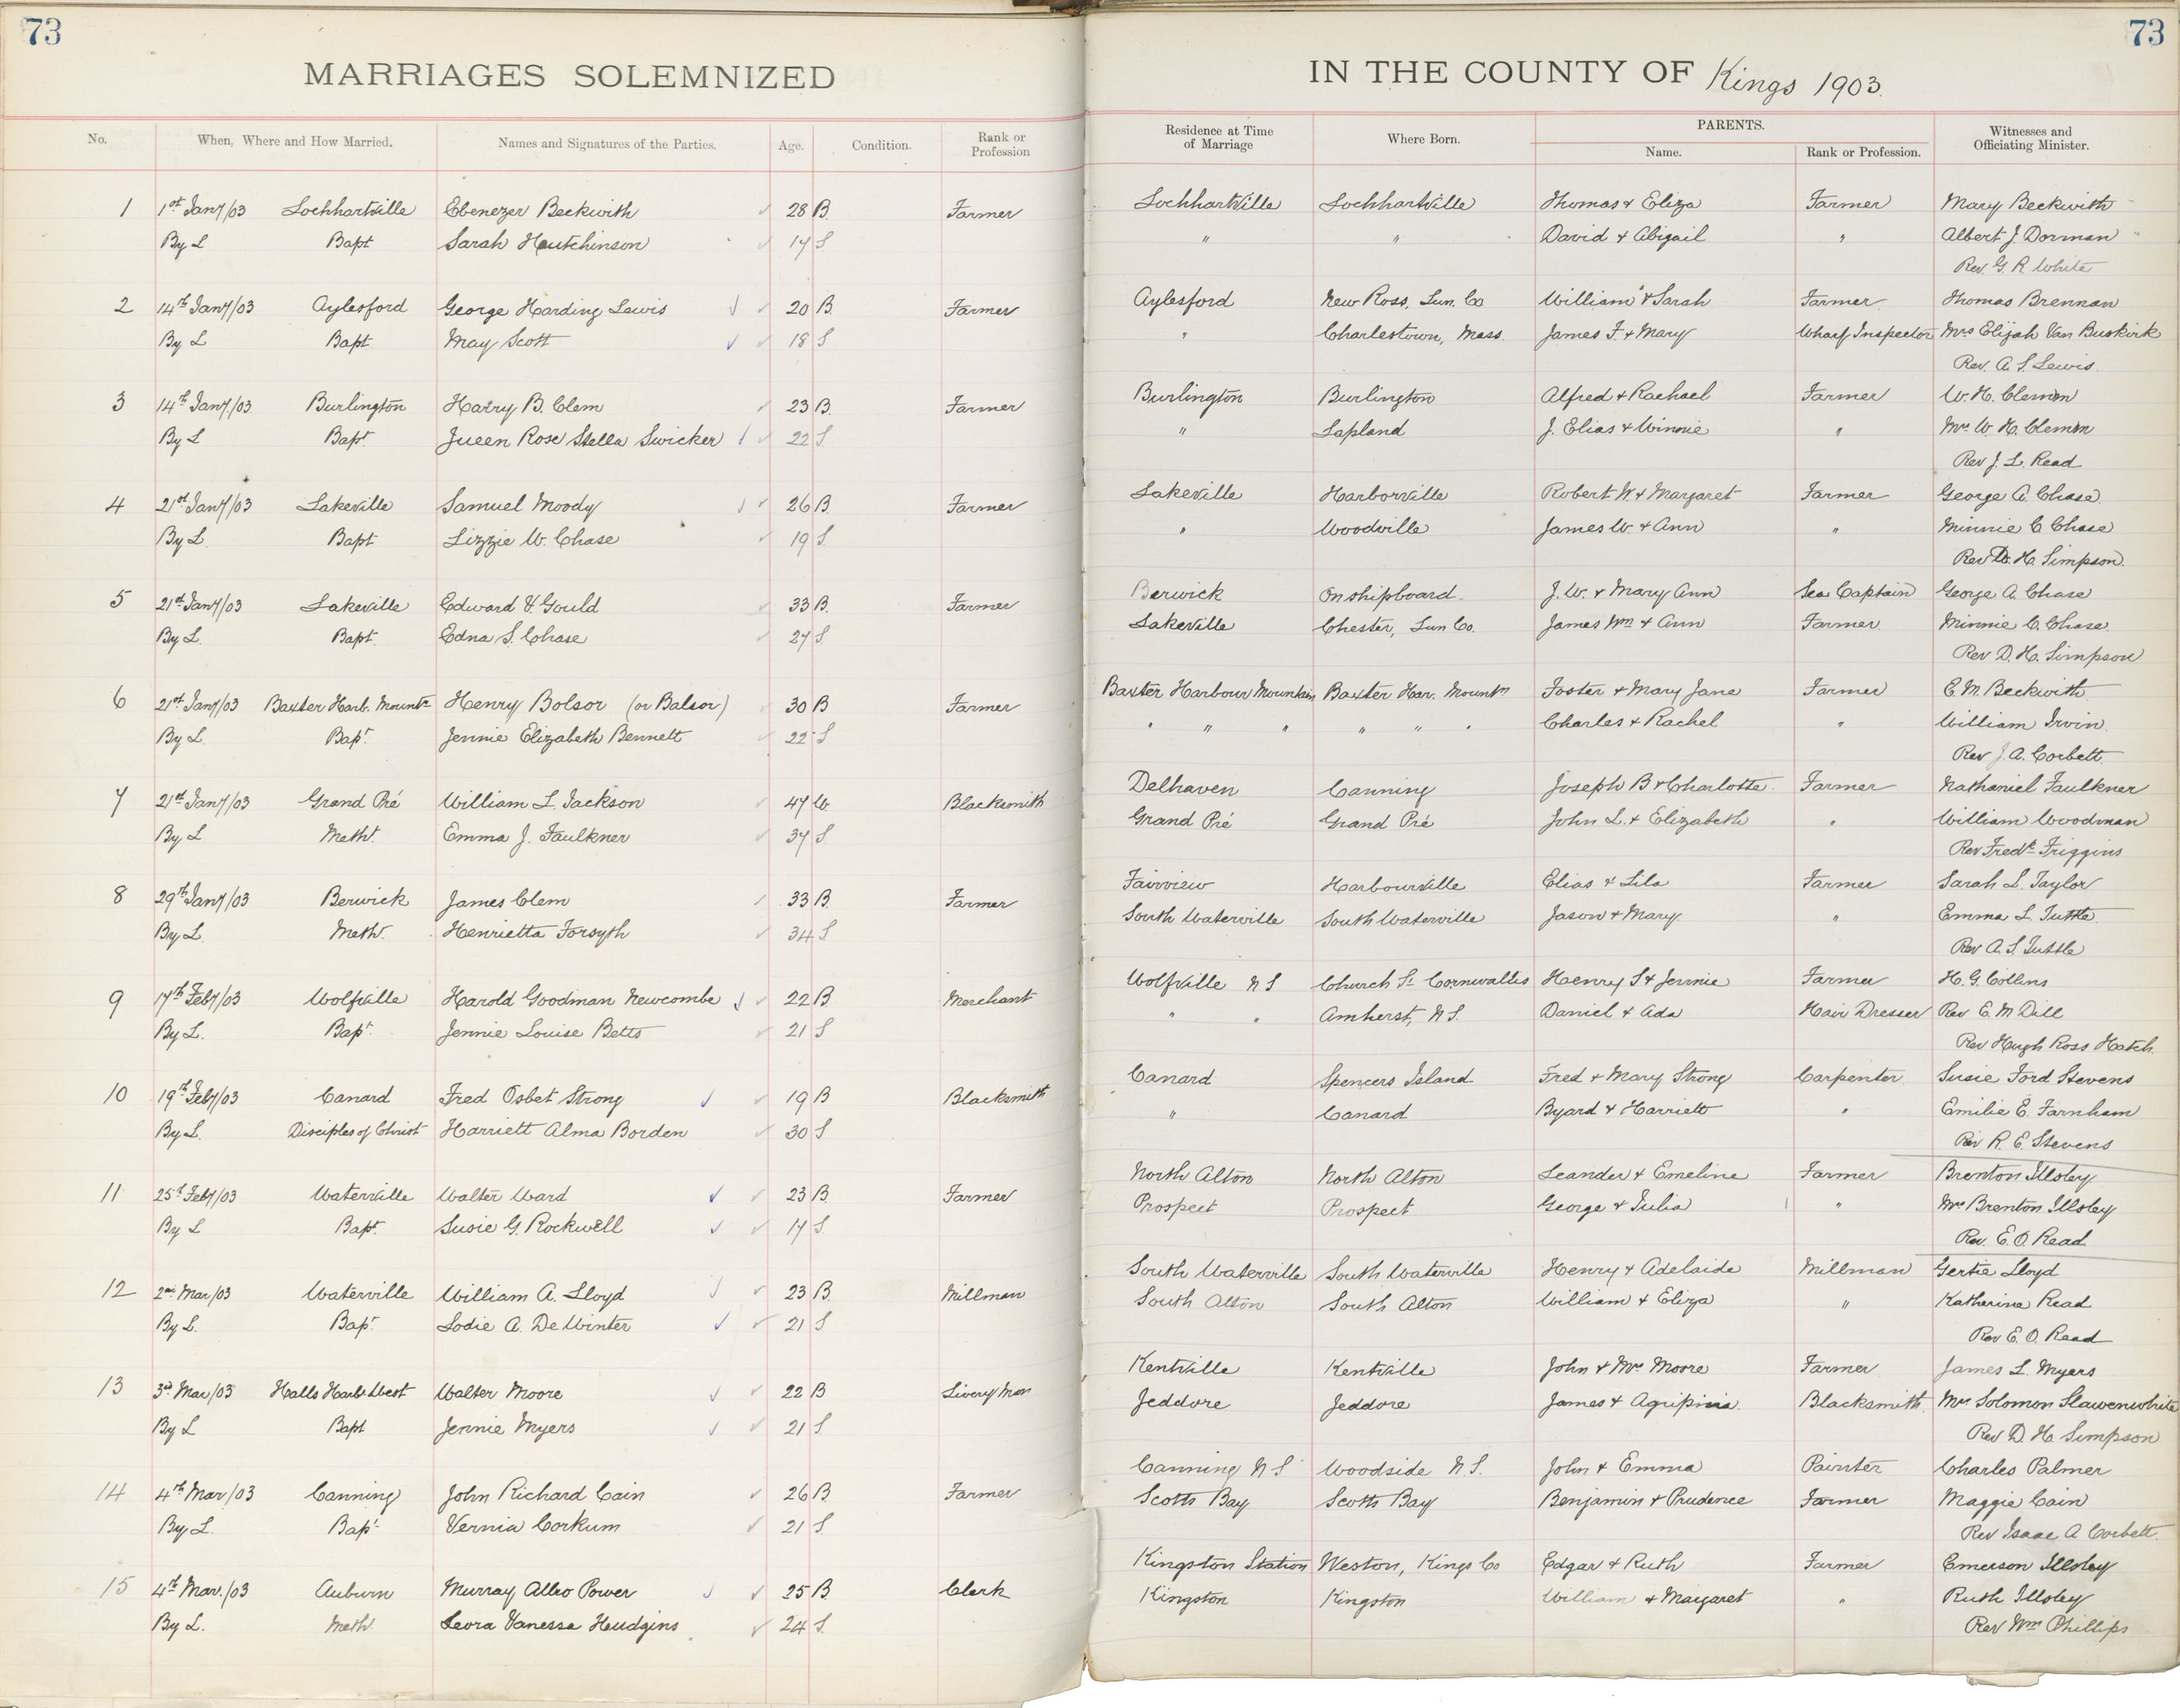 73
73
MARRIAGES SOLEMNIZED
IN THE COUNTY OF Kings 1903.
No. When, Where and How Married. Names and Signatures of the Parties. Age. Condition. Rank or Profession Residence at Time of Marriage Where Born. PARENTS. Name. Rank or Profession. Witnesses and Officiating Minister.
1 1st Jany/03 Lockhartville Ebenezer Beckwith 28 B. Farmer Lockhartville Lockhartville Thomas & Eliza Farmer Mary Beckwith
By L Bapt Sarah Hutchinson 17 S " " David & Abigail " Albert J. Dorman
Rev. G. R. White
2 14th Jany/03 Aylesford George Harding Lewis 20 B. Farmer Aylesford New Ross, Lun. Co William & Sarah Farmer Thomas Brennan
By L Bapt May Scott 18 S " Charlestown, Mass. James F. & Mary Wharf Inspector Mrs Elijah Van Buskirk
Rev. A. S. Lewis.
3 14th Jany/03 Burlington Harry B. Clem 23 B. Farmer Burlington Burlington Alfred & Rachael Farmer W. H. Clemm
By L Bapt Jueen Rose Stella Swicker 22 S " Lapland J. Elias & Winnie " Mrs W. H. Clemm
Rev J. L. Read
4 21st Jany/03 Lakeville Samuel Moody 26 B. Farmer Lakeville Harborville Robert W. & Margaret Farmer George A. Chase
By L. Bapt Lizzie W. Chase 19 S. " Woodville James W. & Ann " Minnie C Chase
Rev D. H. Simpson.
5 21st Jany/03 Lakeville Edward V. Gould 33 B. Farmer Berwick On shipboard. J. W. & Mary Ann Sea Captain George A. Chase
By L. Bapt. Edna S. Chase 27 S. Lakeville Chester, Lun Co. James Wm & Ann Farmer Minnie C. Chase.
Rev D. H. Simpson
6 21st Jany/03 Baxter Harb. Mountn Henry Bolsor (or Balsor) 30 B Farmer Baxter Harbour Mountain Baxter Har. Mountn Foster & Mary Jane Farmer E. M. Beckwith
By L. Bapt. Jennie Elizabeth Bennett 22 S " " " " " " Charles & Rachel " William Irvin.
Rev J. A. Corbett.
7 21st Jany/03 Grand Pré William L. Jackson 47 W. Blacksmith Delhaven Canning Joseph B & Charlotte Farmer Nathaniel Faulkner
By L Metht. Emma J. Faulkner 37 S. Grand Pré Grand Pré John L. & Elizabeth " William Woodman
Rev Fredk Friggins
8 29th Jany/03 Berwick James Clem 33 B. Farmer Fairview Harbourville Elias & Lila Farmer Sarah L. Taylor
By L. Meth. Henrietta Forsyth 34 S South Waterville South Waterville Jason & Mary " Emma L. Tuttle
Rev A. S Tuttle
9 17th Feby/03 Wolfville Harold Goodman Newcombe 22 B Merchant Wolfville N S Church St Cornwallis Henry S & Jennie Farmer H. G. Collins
By L. Bapt. Jennie Louise Betts 21 S " " Amherst, N S. Daniel & Ada Hair Dresser Rev E. M Dill
Rev Hugh Ross Hatch.
10 19th Feby/03 Canard Fred Osbet Strong 19 B Blacksmith Canard Spencers Island Fred & Mary Strong Carpenter Susie Ford Stevens
By L. Disciples of Christ Harriett Alma Borden 30 S " Canard Byard & Harriett " Emilie E. Farnham
Rev R. E. Stevens
11 25th Feby/03 Waterville Walter Ward 23 B Farmer North Alton North Alton Leander & Emeline Farmer Brenton Illsley
By L Bapt. Susie G. Rockwell 17 S. Prospect Prospect George & Julia " Mrs Brenton Illsley
Rev. E. O. Read
12 2nd Mar/03 Waterville William A. Lloyd 23 B. Millman South Waterville South Waterville Henry & Adelaide Millman Gertie Lloyd
By L. Bapt. Lodie A. De Winter 21 S South Alton South Alton William & Eliza " Katherine Read
Rev E. O. Read
13 3rd Mar/03 Halls Harb. West Walter Moore 22 B Livery Man Kentville Kentville John & Mrs Moore Farmer James L. Myers
By L Bapt Jennie Myers 21 S Jeddore Jeddore James & Agripinia Blacksmith Mrs Solomon Slawenwhite
Rev D. H. Simpson
14 4th Mar/03 Canning John Richard Cain 26 B. Farmer Canning N S Woodside N. S. John & Emma Painter Charles Palmer
By L. Bapt. Vernia Corkum 21 S. Scotts Bay Scotts Bay Benjamin & Prudence Farmer Maggie Cain
Rev Isaac A Corbett.
15 4th Mar./03 Auburn Murray Alleo Power 25 B. Clerk Kingston Station Weston, Kings Co Edgar & Ruth Farmer Emerson Illsley
By L. Meth. Leora Vanessa Heudgins 24 S. Kingston Kingston William & Margaret " Ruth Illsley
Rev Wm Phillips